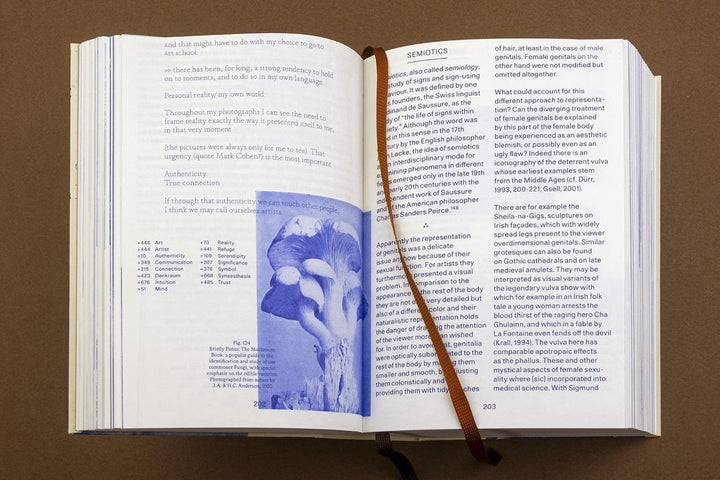 and that might have to do with my choice to go to
art school.
>> there has been, for long, a strong tendency to hold
on to moments, and to do so in my own language.
Personal reality/my own world:
Throughout my photographs I can see the need to
frame reality exactly the way it presented itself to me,
in that very moment
(the pictures were always only for me to see). That
urgency (quote Mark Cohen?) is the most important.
Authenticity
True connection
If through that authenticity we can touch other people,
I think we may call ourselves artists.
+446 Art
+444 Artist
+10 Authenticity
+349 Communication
+215 Connection
+423 Denkraum
+676 Intuition
+51 Mind
+70 Reality
+441 Refuge
+109 Serendipity
+207 Significance
+376 Symbol
+668 Synesthesia
+485 Trust
Fig. 124
Briefly Putnis: The Mushroom
Book: a popular guide to the
identification and study of our
commoner Fungi, with special
emphasis on the edible varieties.
Photographed from nature by
J.A. & H.C. Anderson,
202
SEMIOTICS
also called semiology,
study of signs and sign-using
behaviour. It was defined by one
founders, the Swiss linguist
Ferdinand de Saussure, as the
study of "the life of signs within
society." Although the word was
in this sense in the 17th
century by the English philosopher
Locke, the idea of semiotics
an interdisciplinary mode for
phenomena in different
fields emerged only in the late 19th
early 20th centuries with the
independent work of Saussure
and of the American philosopher
Charles Sanders Peirce.148
Apparently the representation
of genitals was a delicate
issue and how because of their
sexual function. For artists they
furthermore presented a visual
problem. In comparison to the
appearance of the rest of the body
they are not very detailed but
also of a different color and their
naturalistic representation holds
the danger of drawing the attention
of the viewer more than wished
for. In order to avoid that, genitalia
were optically subordinated to the
rest of the body by making them
smaller and smooth, by adjusting
them coloristically and
providing them with tidy patches
of hair, at least in the case of male
genitals. Female genitals on the
other hand were not modified but
omitted altogether.
What could account for this
different approach to representa-
tion? Can the diverging treatment
of female genitals be explained
by this part of the female body
being experienced as an aesthetic
blemish, or possibly even as an
ugly flaw? Indeed there is an
iconography of the deterrent vulva
whose earliest examples stem
from the Middle Ages (cf. Dürr,
1993, 200-221; Gsell, 2001).
There are for example the
Sheila-na-Gigs, sculptures on
Irish façades, which with widely
spread legs present to the viewer
overdimensional genitals. Similar
grotesques can also be found
on Gothic cathedrals and on late
medieval amulets. They may be
interpreted as visual variants of
the legendary vulva show with
which for example in an Irish folk
tale a young woman arrests the
blood thirst of the raging hero Cha
Ghulainn, and which in a fable by
La Fontaine even fends off the devil
(Krall, 1994). The vulva here has
comparable apotropaic effects
as the phallus. These and other
mystical aspects of female sexu-
ality where [sic] incorporated into
medical science. With Sigmund
203